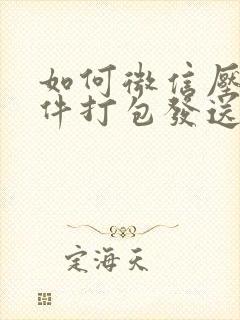 如何微信壓
件打包發送
定海天